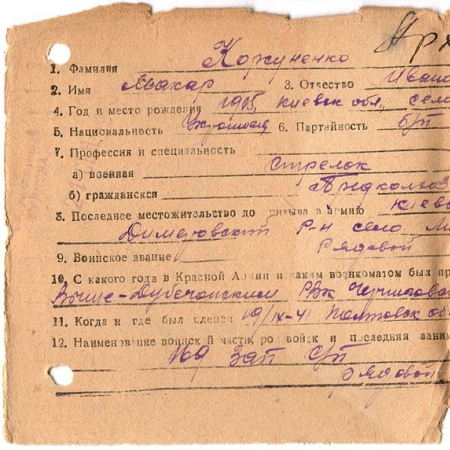 1. Фамилия Кожуненко
2. Имя Макар 3. Отчество Ивано
4. Год и место рождения 1905, Киевск обл, село
5. Национальность Украинец 6. Партийность б/п
7. Профессия и специальность
а) военная Стрелок
б) гражданская Предколхоз
8. Последнее местожительство до призыва в армию Киевс
Димеровский р-н село
9. Воинское звание Рядовой
10. С какого года в Красной Армии и каким военкоматом был пр
Выше-Дубечанским РВК Черниговс
11. Когда и где был пленен 19/IX-41 Полтовск об
12. Наименование воинской части, род войск и последняя заним
169 Зап С/П
рядовой